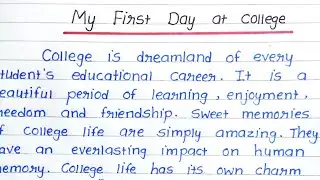 My First Day at College
College is dreamland of every
student's educational career. It is a
beautiful period of learning, enjoyment,
freedom and friendship. Sweet memories
of college life are simply amazing. They
have an everlasting impact on human
memory. College life has its own charm